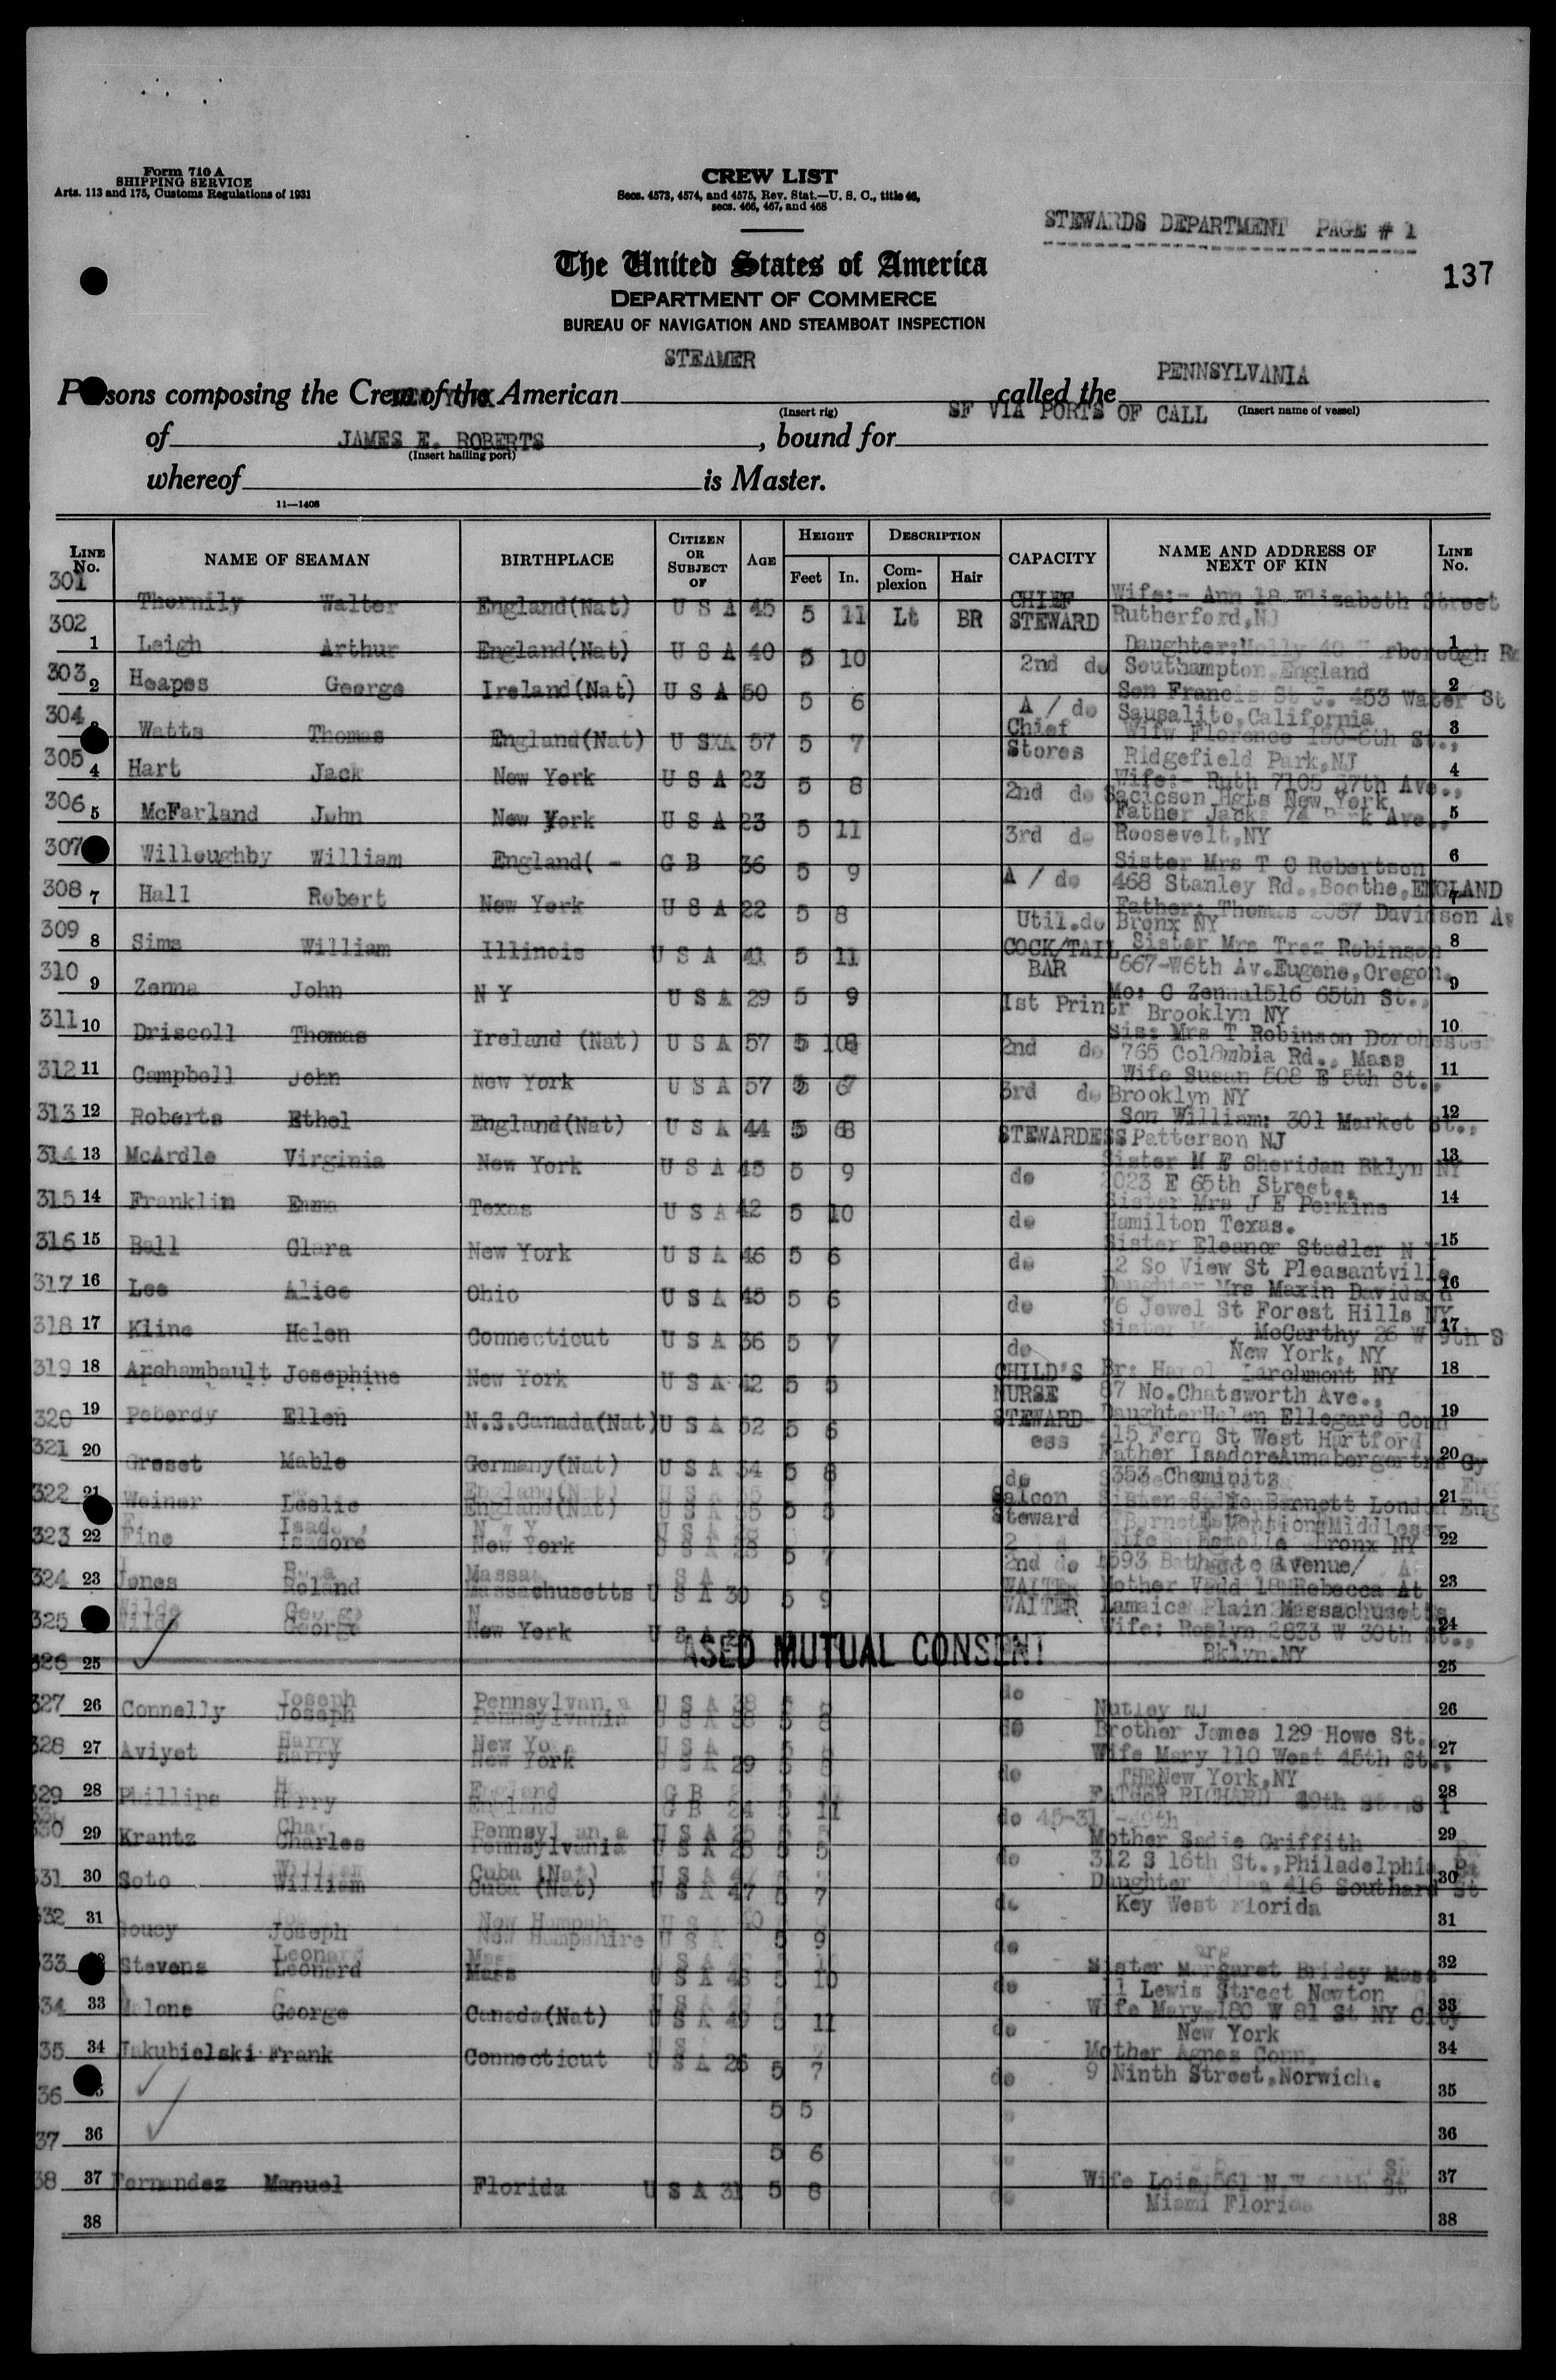 Form 710 A
SHIPPING SERVICE
Arts. 113 and 175, Customs Regulations of 1931
CREW LIST
Secs. 4573, 4574, and 4575, Rev. Stat.—U. S. C., title 46,
secs. 466, 467, and 468
STEWARDS DEPARTMENT PAGE # 1
137
The United States of America
DEPARTMENT OF COMMERCE
BUREAU OF NAVIGATION AND STEAMBOAT INSPECTION
STEAMER
PENNSYLVANIA
Persons composing the Crew of the American called the
(Insert rig) SF VIA PORTS OF CALL (Insert name of vessel)
of JAMES E. ROBERTS , bound for
(Insert hailing port)
whereof is Master.
11—1408
LINE No. NAME OF SEAMAN BIRTHPLACE CITIZEN OR SUBJECT OF AGE HEIGHT Feet In. DESCRIPTION Complexion Hair CAPACITY NAME AND ADDRESS OF NEXT OF KIN LINE No.
301 Thornily Walter England(Nat) U S A 45 5 11 Lt BR CHIEF STEWARD Wife:- Ann 18 Elizabeth Street
Rutherford,NJ
302 1 Leigh Arthur England(Nat) U S A 40 5 10 2nd do Daughter: 40 Rd 1
Southampton England
303 2 Heapes George Ireland(Nat) U S A 50 5 6 A / do Son Francis 453 Water St 2
Sausalito,California
304 Watts Thomas England(Nat) U S A 57 5 7 Chief Stores Wifw Florence 150-6th St., 3
Ridgefield Park,NJ
305 4 Hart Jack New York U S A 23 5 8 2nd do Wife:- Ruth 7105 37th Ave., 4
Hgts New York
306 5 McFarland John New York U S A 23 5 11 3rd do Father Jack: Ave., 5
Roosevelt,NY
307 Willoughby William England( - G B 36 5 9 A / do Sister Mrs T C Robertson 6
468 Stanley Rd.,Boothe,ENGLAND
308 7 Hall Robert New York U S A 22 5 8 Util.do Father: Thomas Davidson Av 7
Bronx NY
309 8 Sims William Illinois U S A 41 5 11 COCK/TAIL BAR Sister Mrs Trez Robinson 8
667-W6th Av.Eugene,Oregon.
310 9 Zenna John N Y U S A 29 5 9 1st Printr Mo: C Zenna1516 65th St., 9
Brooklyn NY
311 10 Driscoll Thomas Ireland (Nat) U S A 57 5 2nd do Sis: Mrs T Robinson Dorchester 10
765 Rd., Mass
312 11 Campbell John New York U S A 57 5 3rd do Wife Susan 508 E 5th St., 11
Brooklyn NY
313 12 Roberts Ethel England(Nat) U S A 44 5 STEWARDESS Son William: 301 Market St., 12
Patterson NJ
314 13 McArdle Virginia New York U S A 45 5 9 do Sister M E Sheridan Bklyn NY 13
2023 E 65th Street.,
315 14 Franklin Emma Texas U S A 42 5 10 do Sister Mrs J E Perkins 14
Hamilton Texas.
316 15 Ball Clara New York U S A 46 5 6 do Sister Eleanor Stadler N Y 15
12 So View St Pleasantville
317 16 Lee Alice Ohio U S A 45 5 6 do Daughter Mrs Maxin Davidson 16
76 Jewel St Forest Hills NY
318 17 Kline Helen Connecticut U S A 36 5 7 do Sister McCarthy 26 W 9th S 17
New York, NY
319 18 Archambault Josephine New York U S A 42 5 5 CHILD'S NURSE Br: Harol Larchmont NY 18
87 No.Chatsworth Ave.,
320 19 Peberdy Ellen N.S.Canada(Nat) U S A 52 5 6 STEWARD-ess Daughter Helen Ellegard Conn 19
415 Fern St West Hartford
321 20 Greset Mable Germany(Nat) U S A 34 5 8 do Father Isadore Gy 20
353 Cheminitz
322 21 Weiner Leslie England(Nat) U S A 35 5 5 Saloon Steward Sister Barnett London Eng 21
323 22 Fine Isadore New York U S A 28 5 7 2nd do Wife Bronx NY 22
1593 Avenue/
324 23 Jones Roland Massachusetts U S A 30 5 9 WAITER Mother Rebecca At 23
Jamaica Plain Massachusetts
325 Wilde George New York U S A WAITER Wife: Roslyn 2833 W 30th St., 24
Bklyn.NY
326 25 ASED MUTUAL CONSENT 25
327 26 Connelly Joseph Pennsylvania U S A 38 5 8 do Nutley NJ 26
Brother James 129 Howe St.
328 27 Aviyet Harry New York U S A 29 5 8 do Wife Mary 110 West 45th St., 27
New York,NY
329 28 Phillips Harry England G B 24 5 11 do RICHARD 49th St. 28
45-31 -49th
330 29 Krantz Charles Pennsylvania U S A 25 5 5 do Mother Sadie Griffith 29
312 S 16th St.,Philadelphia Pa
331 30 Soto William Cuba (Nat) U S A 47 5 7 do Daughter 416 Southard St 30
Key West Florida
332 31 Joseph New Hampshire U S A 40 5 9 do 31
33 Stevens Leonard Mass U S A 5 10 do Sister Margaret Bridey Mass 32
11 Lewis Street Newton
34 33 Malone George Canada(Nat) U S A 49 5 11 do Wife Mary 180 W 81 St NY City 33
New York
35 34 Jakubielski Frank Connecticut U S A 26 5 7 do Mother Agnes Conn. 34
9 Ninth Street,Norwich.
36 5 5 35
37 36 5 6 36
38 37 Fernandez Manuel Florida U S A 31 5 8 do Wife Lois 561 N.W St 37
Miami Florida
38 38